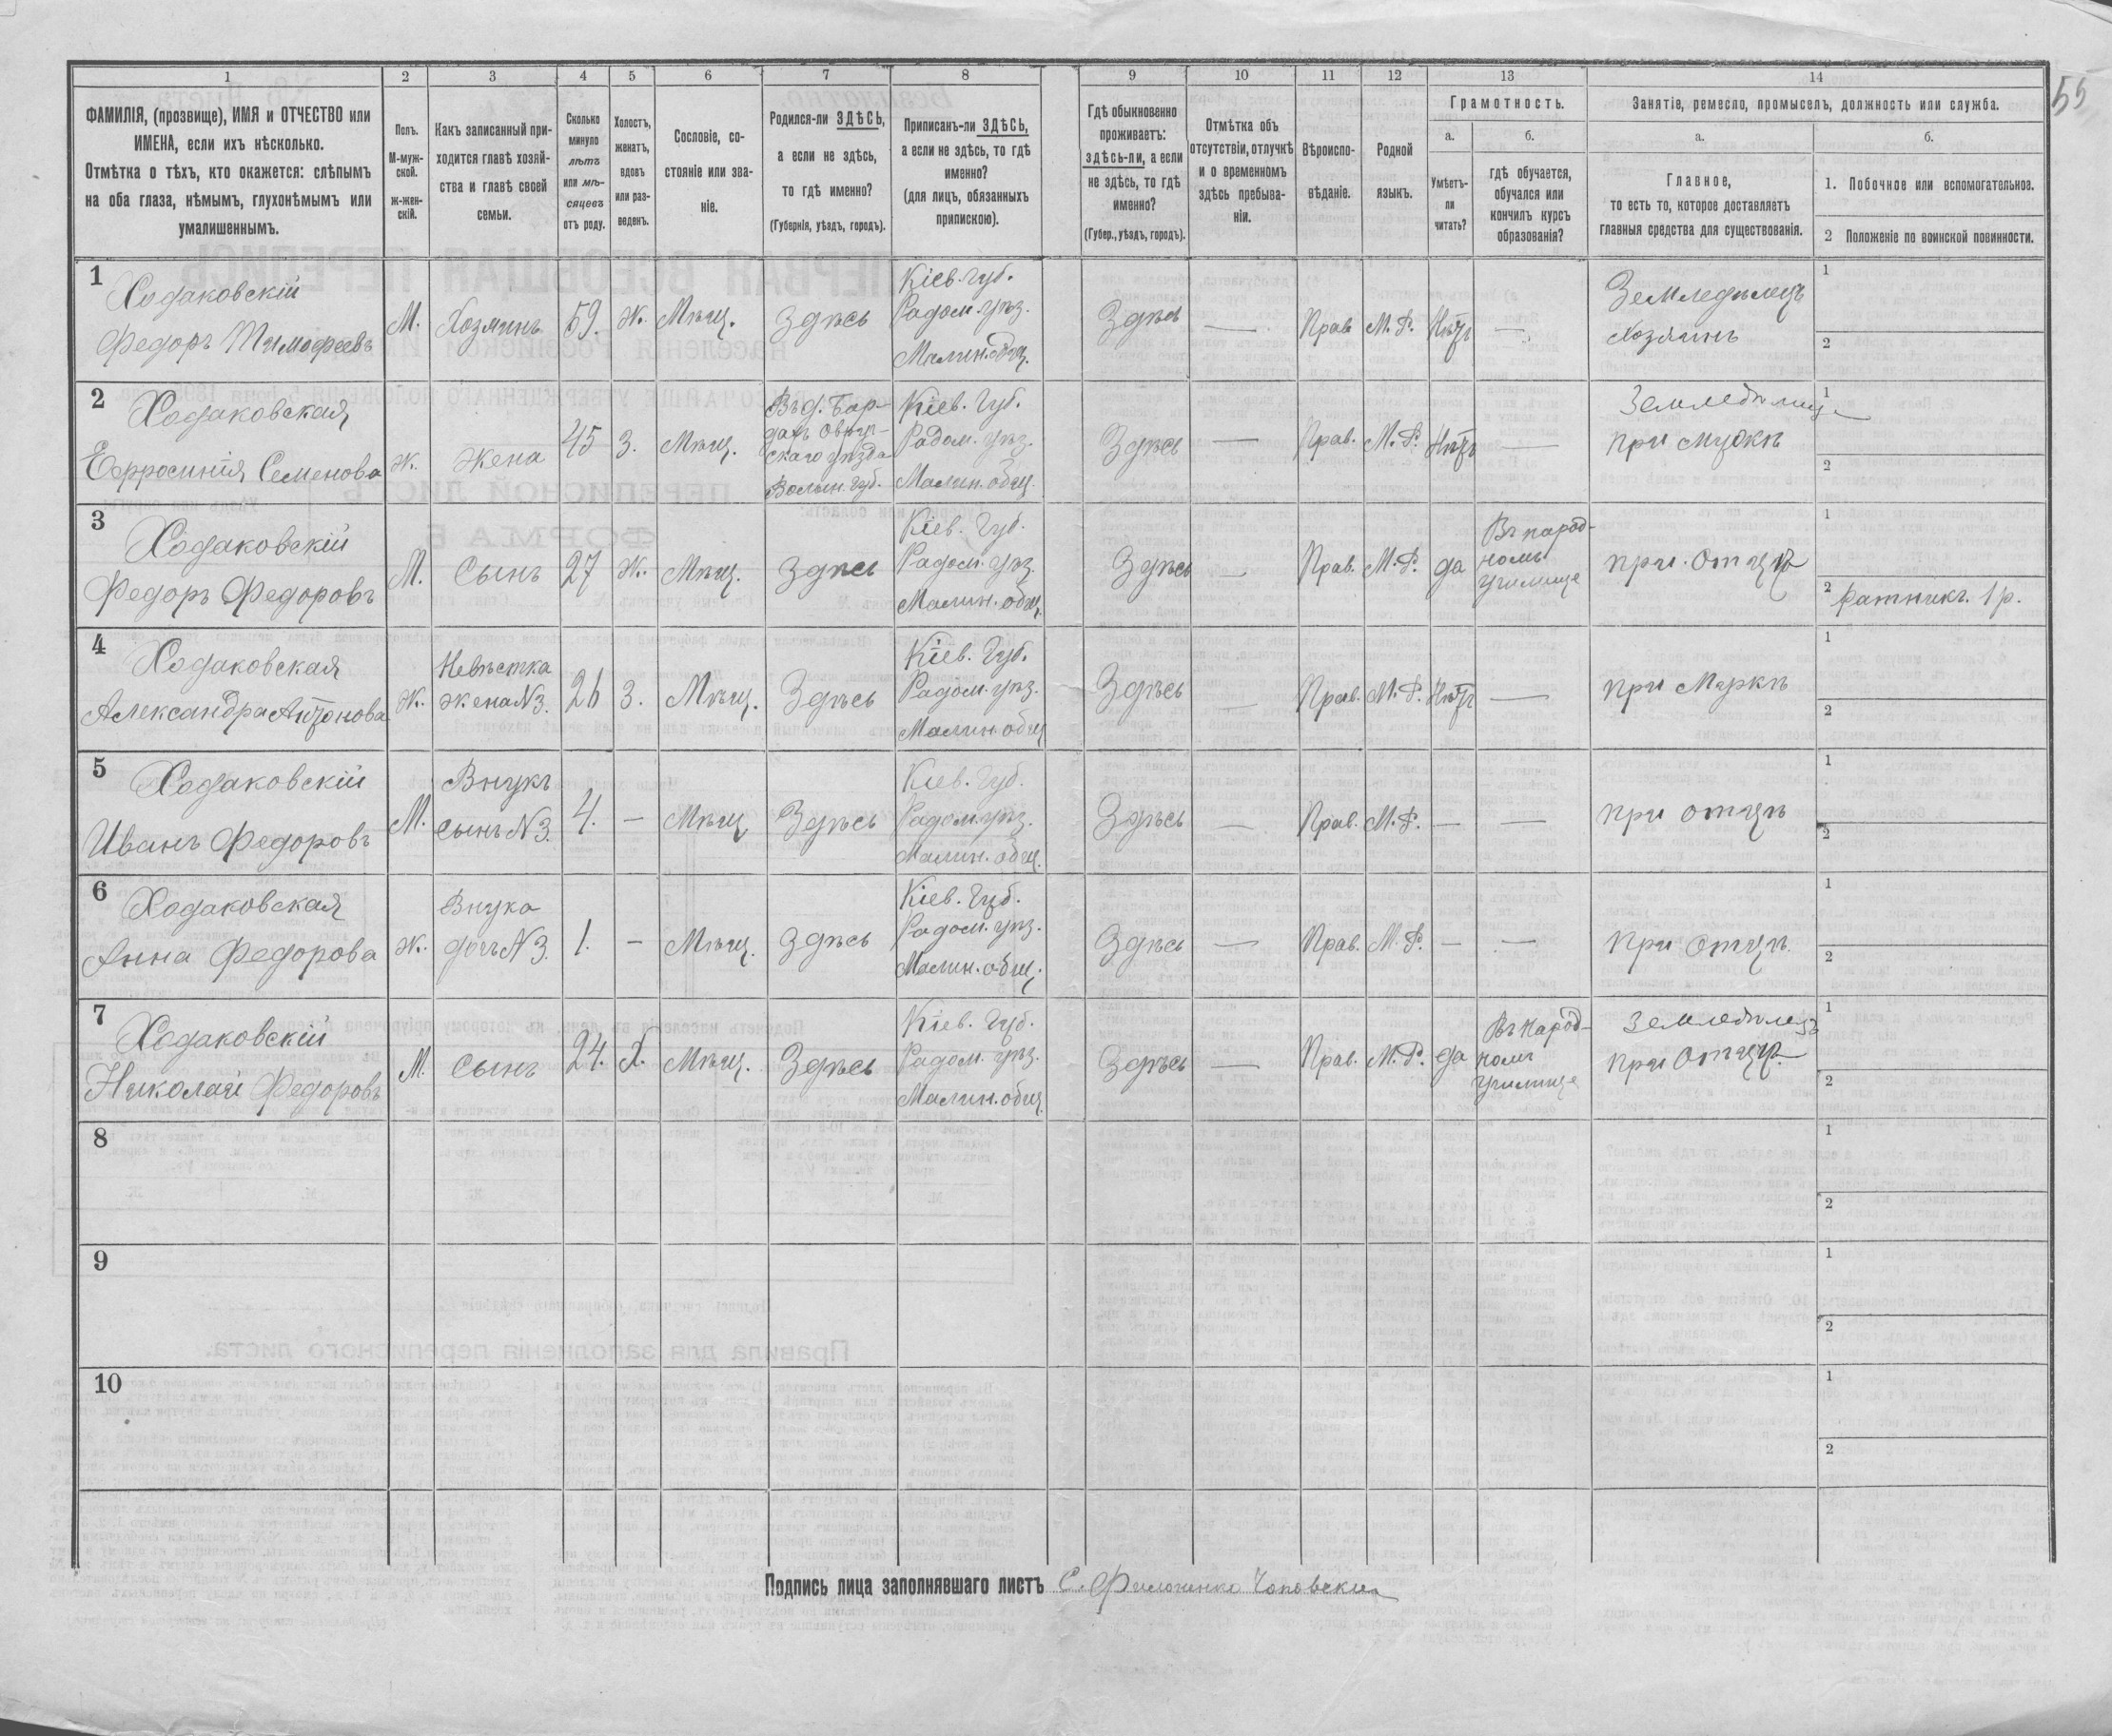 55
1
2
3
4
5
6
7
8
9
10
11
12
13
14
ФАМИЛІЯ, (прозвище), ИМЯ и ОТЧЕСТВО или
ИМЕНА, если ихъ нѣсколько.
Отмѣтка о тѣхъ, кто окажется: слѣпымъ
на оба глаза, нѣмымъ, глухонѣмымъ или
умалишеннымъ.
Полъ.
М-муж-
ской.
ж-жен-
скій.
Какъ записанный при-
ходится главѣ хозяй-
ства и главѣ своей
семьи.
Сколько
минуло
лѣтъ
или мѣ-
сяцевъ
отъ роду.
Холостъ,
женатъ,
вдовъ
или раз-
веденъ.
Сословіе, со-
стояніе или зва-
ніе.
Родился-ли ЗДѢСЬ,
а если не здѣсь,
то гдѣ именно?
(Губернія, уѣздъ, городъ).
Приписанъ-ли ЗДѢСЬ,
а если не здѣсь, то гдѣ
именно?
(для лицъ, обязанныхъ
припискою).
Гдѣ обыкновенно
проживаетъ:
здѣсь-ли, а если
не здѣсь, то гдѣ
именно?
(Губер., уѣздъ, городъ).
Отмѣтка объ
отсутствіи, отлучкѣ
и о временномъ
здѣсь пребыва-
ніи.
Вѣроиспо-
вѣданіе.
Родной
языкъ.
Грамотность.
а.
Умѣетъ-
ли
читать?
б.
гдѣ обучается,
обучался или
кончилъ курсъ
образованія?
Занятіе, ремесло, промыселъ, должность или служба.
а.
Главное,
то есть то, которое доставляетъ
главныя средства для существованія.
б.
1. Побочное или вспомогательное.
2 Положеніе по воинской повинности.
1
Ходаковскій
Федоръ Тимофеевъ
М.
Хозяинъ
59.
Ж.
Мѣщ.
Здѣсь
Кіев. Губ.
Радом. уѣз.
Малин. общ.
Здѣсь
—
Прав.
М. Р.
Нѣтъ
—
Земледѣлецъ
Хозяинъ
1
2
2
Ходаковская
Ефросинія Семенова
Ж.
Жена
45
З.
Мѣщ.
Въ д. Бар-
дахъ Овруч-
скаго уѣзда
Волын. Губ.
Кіев. Губ.
Радом. уѣз.
Малин. общ.
Здѣсь
—
Прав.
М. Р.
Нѣтъ
—
Земледѣлица
при мужѣ
1
2
3
Ходаковскій
Федоръ Федоровъ
М.
Сынъ
27
Ж.
Мѣщ.
Здѣсь
Кіев. Губ.
Радом. уѣз.
Малин. общ.
Здѣсь
—
Прав.
М. Р.
да
Въ народ-
номъ
училище
при отцѣ
1
2 Ратникъ. 1 р.
4
Ходаковская
Александра Антонова
Ж.
Невѣстка
жена N 3.
26
З.
Мѣщ.
Здѣсь
Кіев. Губ.
Радом. уѣз.
Малин. общ.
Здѣсь
—
Прав.
М. Р.
Нѣтъ
—
при мужѣ
1
2
5
Ходаковскій
Иванъ Федоровъ
М.
Внукъ
сынъ N 3.
4.
—
Мѣщ.
Здѣсь
Кіев. Губ.
Радом. уѣз.
Малин. общ.
Здѣсь
—
Прав.
М. Р.
—
—
при отцѣ
1
2
6
Ходаковская
Анна Федорова
Ж.
Внука
дочь N 3.
1.
—
Мѣщ.
Здѣсь
Кіев. Губ.
Радом. уѣз.
Малин. общ.
Здѣсь
—
Прав.
М. Р.
—
—
при отцѣ
1
2
7
Ходаковскій
Николай Федоровъ
М.
Сынъ
24.
Х.
Мѣщ.
Здѣсь
Кіев. Губ.
Радом. уѣз.
Малин. общ.
Здѣсь
—
Прав.
М. Р.
да
Въ народ-
номъ
училище
Земледѣлецъ
при отцѣ
1
2
8
1
2
9
1
2
10
1
2
Подпись лица заполнявшаго листъ С.